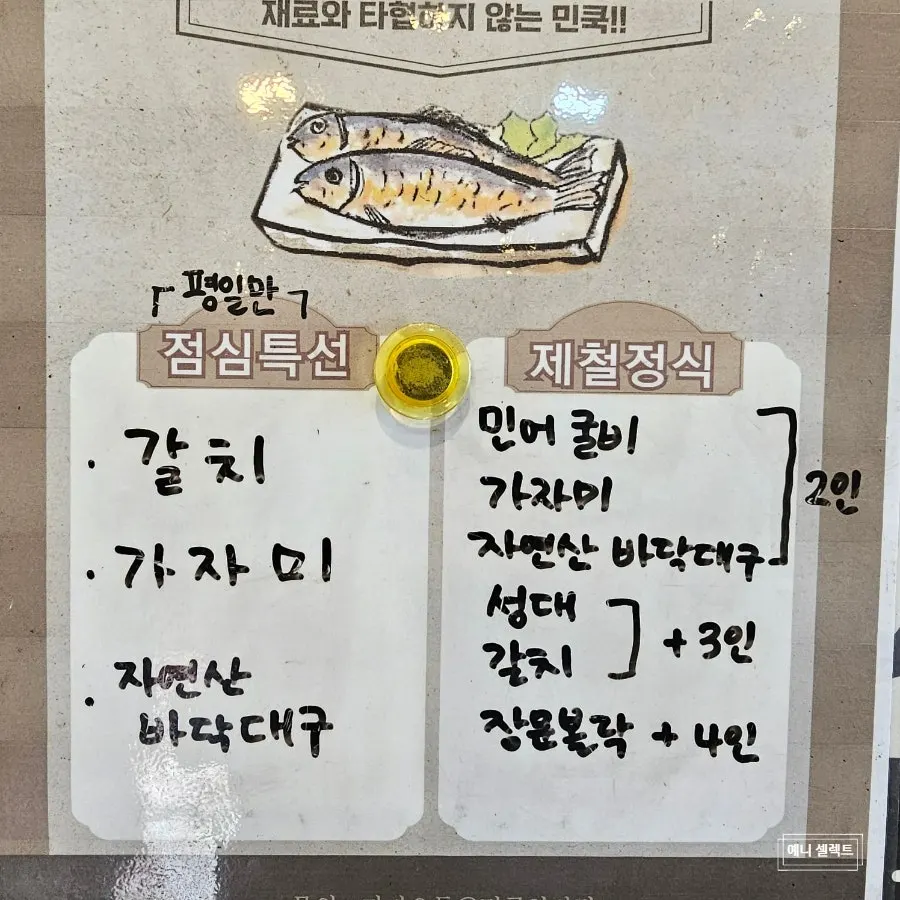 재료와 타협하지 않는 민쿡!!
「평일만」
점심특선
· 갈치
· 가자미
· 자연산
바닥대구
제철정식
민어 굴비
가자미
자연산 바닥대구
2인
성대
갈치
+ 3인
장문볼락 + 4인
예니 셀렉트